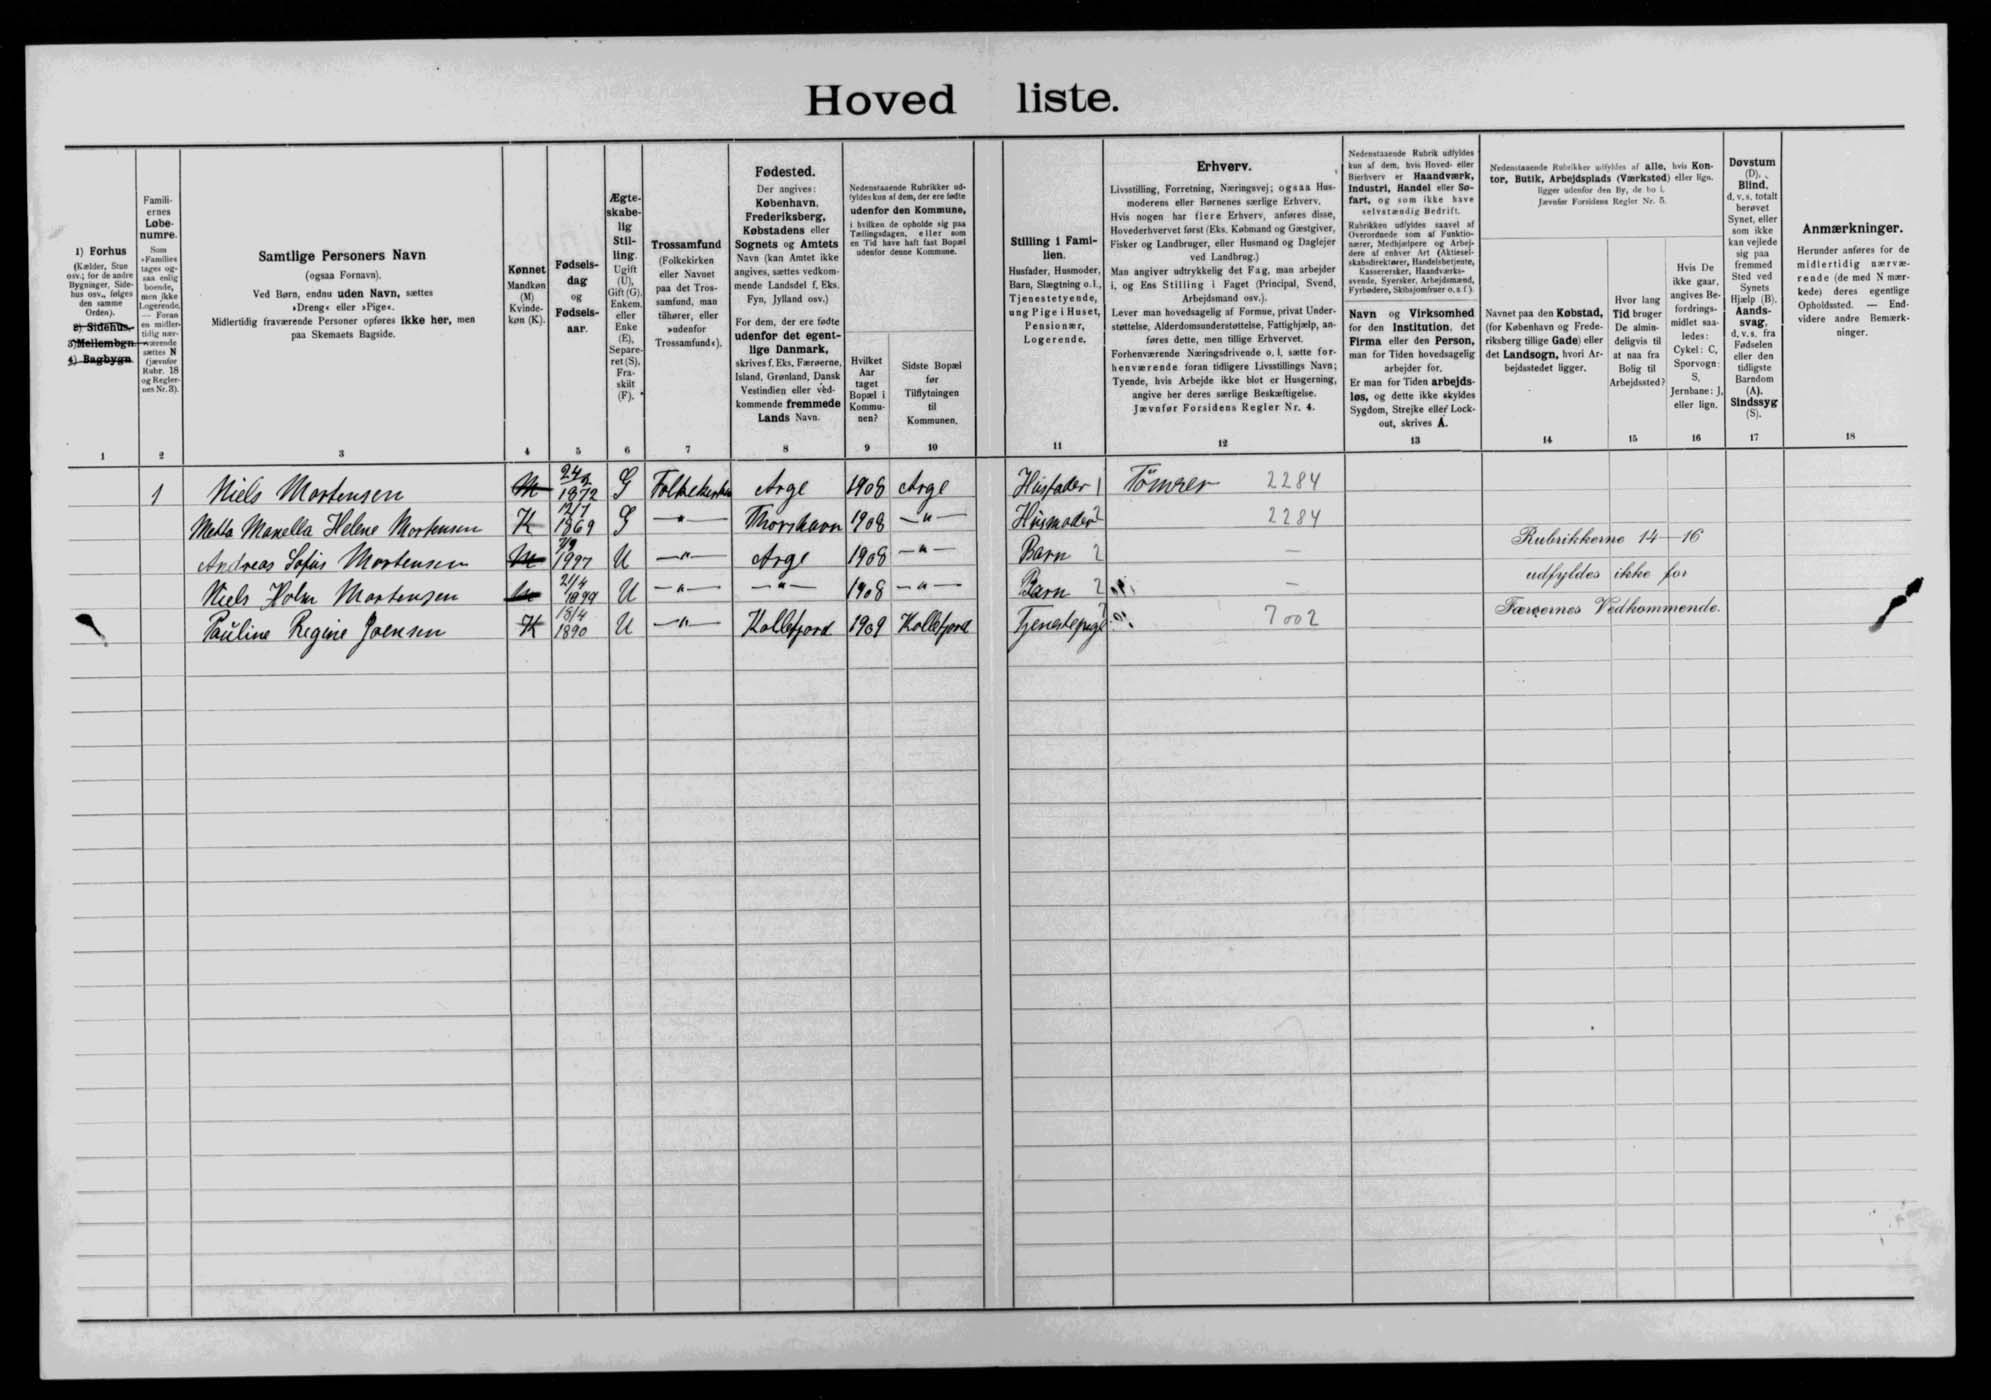 Hoved liste.
1) Forhus
(Kælder, Stue
osv.; for de andre
Bygninger, Side-
hus osv., følges
den samme
Orden).
2) Sidehus.
3) Mellembgn.
4) Bagbygn.
Famili-
ernes
Løbe-
numre.
Som
»Familie«
tages og-
saa enlig
boende,
men ikke
Logerende.
— Foran
en midler-
tidig nær-
værende
sættes N
(jævnfør
Rubr. 18
og Regler-
nes Nr. 3).
Samtlige Personers Navn
(ogsaa Fornavn).
Ved Børn, endnu uden Navn, sættes
»Dreng« eller »Pige«.
Midlertidig fraværende Personer opføres ikke her, men
paa Skemaets Bagside.
Kønnet
Mandkøn
(M)
Kvinde-
køn (K).
Fødsels-
dag
og
Fødsels-
aar.
Ægte-
skabe-
lig
Stil-
ling.
Ugift
(U),
Gift (G),
Enkem.
eller
Enke
(E),
Separe-
ret (S),
Fra-
skilt
(F).
Trossamfund
(Folkekirken
eller Navnet
paa det Tros-
samfund, man
tilhører, eller
»udenfor
Trossamfund«).
Fødested.
Der angives:
København,
Frederiksberg,
Købstadens eller
Sognets og Amtets
Navn (kan Amtet ikke
angives, sættes vedkom-
mende Landsdel f. Eks.
Fyn, Jylland osv.)
For dem, der ere fødte
udenfor det egent-
lige Danmark,
skrives f. Eks. Færøerne,
Island, Grønland, Dansk
Vestindien eller ved-
kommende fremmede
Lands Navn.
Nedenstaaende Rubrikker ud-
fyldes kun af dem, der ere fødte
udenfor den Kommune,
i hvilken de opholde sig paa
Tællingsdagen, eller som
en Tid have haft fast Bopæl
udenfor denne Kommune.
Hvilket
Aar
taget
Bopæl i
Kommu-
nen?
Sidste Bopæl
før
Tilflytningen
til
Kommunen.
Stilling i Fami-
lien.
Husfader, Husmoder,
Barn, Slægtning o. l.,
Tjenestetyende,
ung Pige i Huset,
Pensionær,
Logerende.
Erhverv.
Livsstilling, Forretning, Næringsvej; ogsaa Hus-
moderens eller Børnenes særlige Erhverv.
Hvis nogen har flere Erhverv, anføres disse,
Hovederhvervet først (Eks. Købmand og Gæstgiver,
Fisker og Landbruger, eller Husmand og Daglejer
ved Landbrug.)
Man angiver udtrykkelig det Fag, man arbejder
i, og Ens Stilling i Faget (Principal, Svend,
Arbejdsmand osv.).
Lever man hovedsagelig af Formue, privat Under-
støttelse, Alderdomsunderstøttelse, Fattighjælp, an-
føres dette, men tillige Erhvervet.
Forhenværende Næringsdrivende o. l. sætte for-
henværende foran tidligere Livsstillings Navn;
Tyende, hvis Arbejde ikke blot er Husgerning,
angive her deres særlige Beskæftigelse.
Jævnfør Forsidens Regler Nr. 4.
Nedenstaaende Rubrik udfyldes
kun af dem, hvis Hoved- eller
Bierhverv er Haandværk,
Industri, Handel eller Sø-
fart, og som ikke have
selvstændig Bedrift.
Rubrikken udfyldes saavel af
Overordnede som af Funktio-
nærer, Medhjælpere og Arbej-
dere af enhver Art (Aktiesel-
skabsdirektører, Handelsbetjente,
Kasserersker, Haandværks-
svende, Syersker, Arbejdsmænd,
Fyrbødere, Skibsjomfruer o. s. f.).
Navn og Virksomhed
for den Institution, det
Firma eller den Person,
man for Tiden hovedsagelig
arbejder for.
Er man for Tiden arbejds-
løs, og dette ikke skyldes
Sygdom, Strejke eller Lock-
out, skrives A.
Nedenstaaende Rubrikker udfyldes af alle, hvis Kon-
tor, Butik, Arbejdsplads (Værksted) eller lign.
ligger udenfor den By, de bo i.
Jævnfør Forsidens Regler Nr. 5.
Navnet paa den Købstad,
(for København og Frede-
riksberg tillige Gade) eller
det Landsogn, hvori Ar-
bejdsstedet ligger.
Hvor lang
Tid bruger
De almin-
deligvis til
at naa fra
Bolig til
Arbejdssted?
Hvis De
ikke gaar,
angives Be-
fordrings-
midlet saa-
ledes:
Cykel: C,
Sporvogn:
S,
Jernbane: J,
eller lign.
Døvstum
(D).
Blind,
d. v. s. totalt
berøvet
Synet, eller
som ikke
kan vejlede
sig paa
fremmed
Sted ved
Synets
Hjælp (B).
Aands-
svag,
d. v. s. fra
Fødselen
eller den
tidligste
Barndom
(A).
Sindssyg
(S).
Anmærkninger.
Herunder anføres for de
midlertidig nærvæ-
rende (de med N mær-
kede) deres egentlige
Opholdssted. — End-
videre andre Bemærk-
ninger.
1 2 3 4 5 6 7 8 9 10 11 12 13 14 15 16 17 18
1 Niels Mortensen M 24/2 1872 G Folkekirken Arge 1908 Arge Husfader 1 Tömrer 2284
Metta Manella Helene Mortensen K 12/7 1869 G —"— Thorshavn 1908 —"— Husmoder 2 2284
Andreas Sofus Mortensen M 1897 U —"— Arge 1908 —"— Barn 2 —
Niels Holm Mortensen M 21/4 1899 U —"— —"— 1908 —"— Barn 2 —
Pauline Regine Joensen K 18/4 1890 U —"— Kollefjord 1909 Kollefjord Tjenestepige 7002
Rubrikkerne 14—16
udfyldes ikke for
Færøernes Vedkommende.